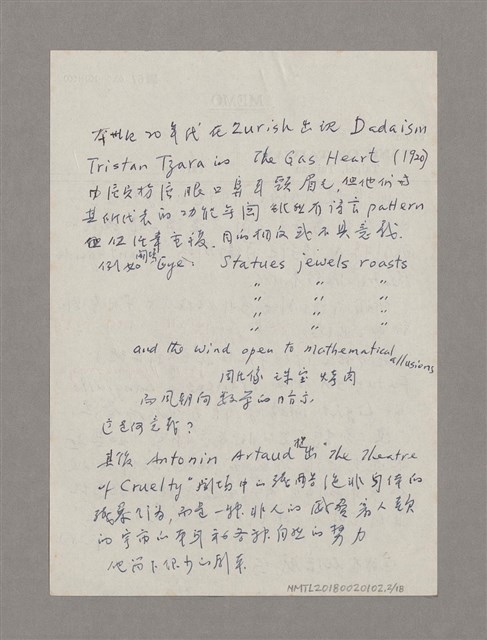 本世紀20年代在Zurish出現 Dadaism
Tristan Tzara in The Gas Heart (1920)
眼口鼻耳頸眉毛,但他們與
其所代表的功能無關 有語言pattern
但 重複,目的 或不具意義.
例如 開場 Eye: Statues jewels roasts
" " "
" " "
" " "
" " "
and the wind open to mathematical allusions
珠宝 烤肉
而風朝向数学的暗示
這是何意義?
其後 Antonin Artaud 提出 "the Theatre
of Cruelty" 劇場中的殘酷 非身体的
殘暴行為,而是一種非人的
的宇宙的 和各種自然的勢力
他留下很少的劇本
NMTL20180020102.3/18